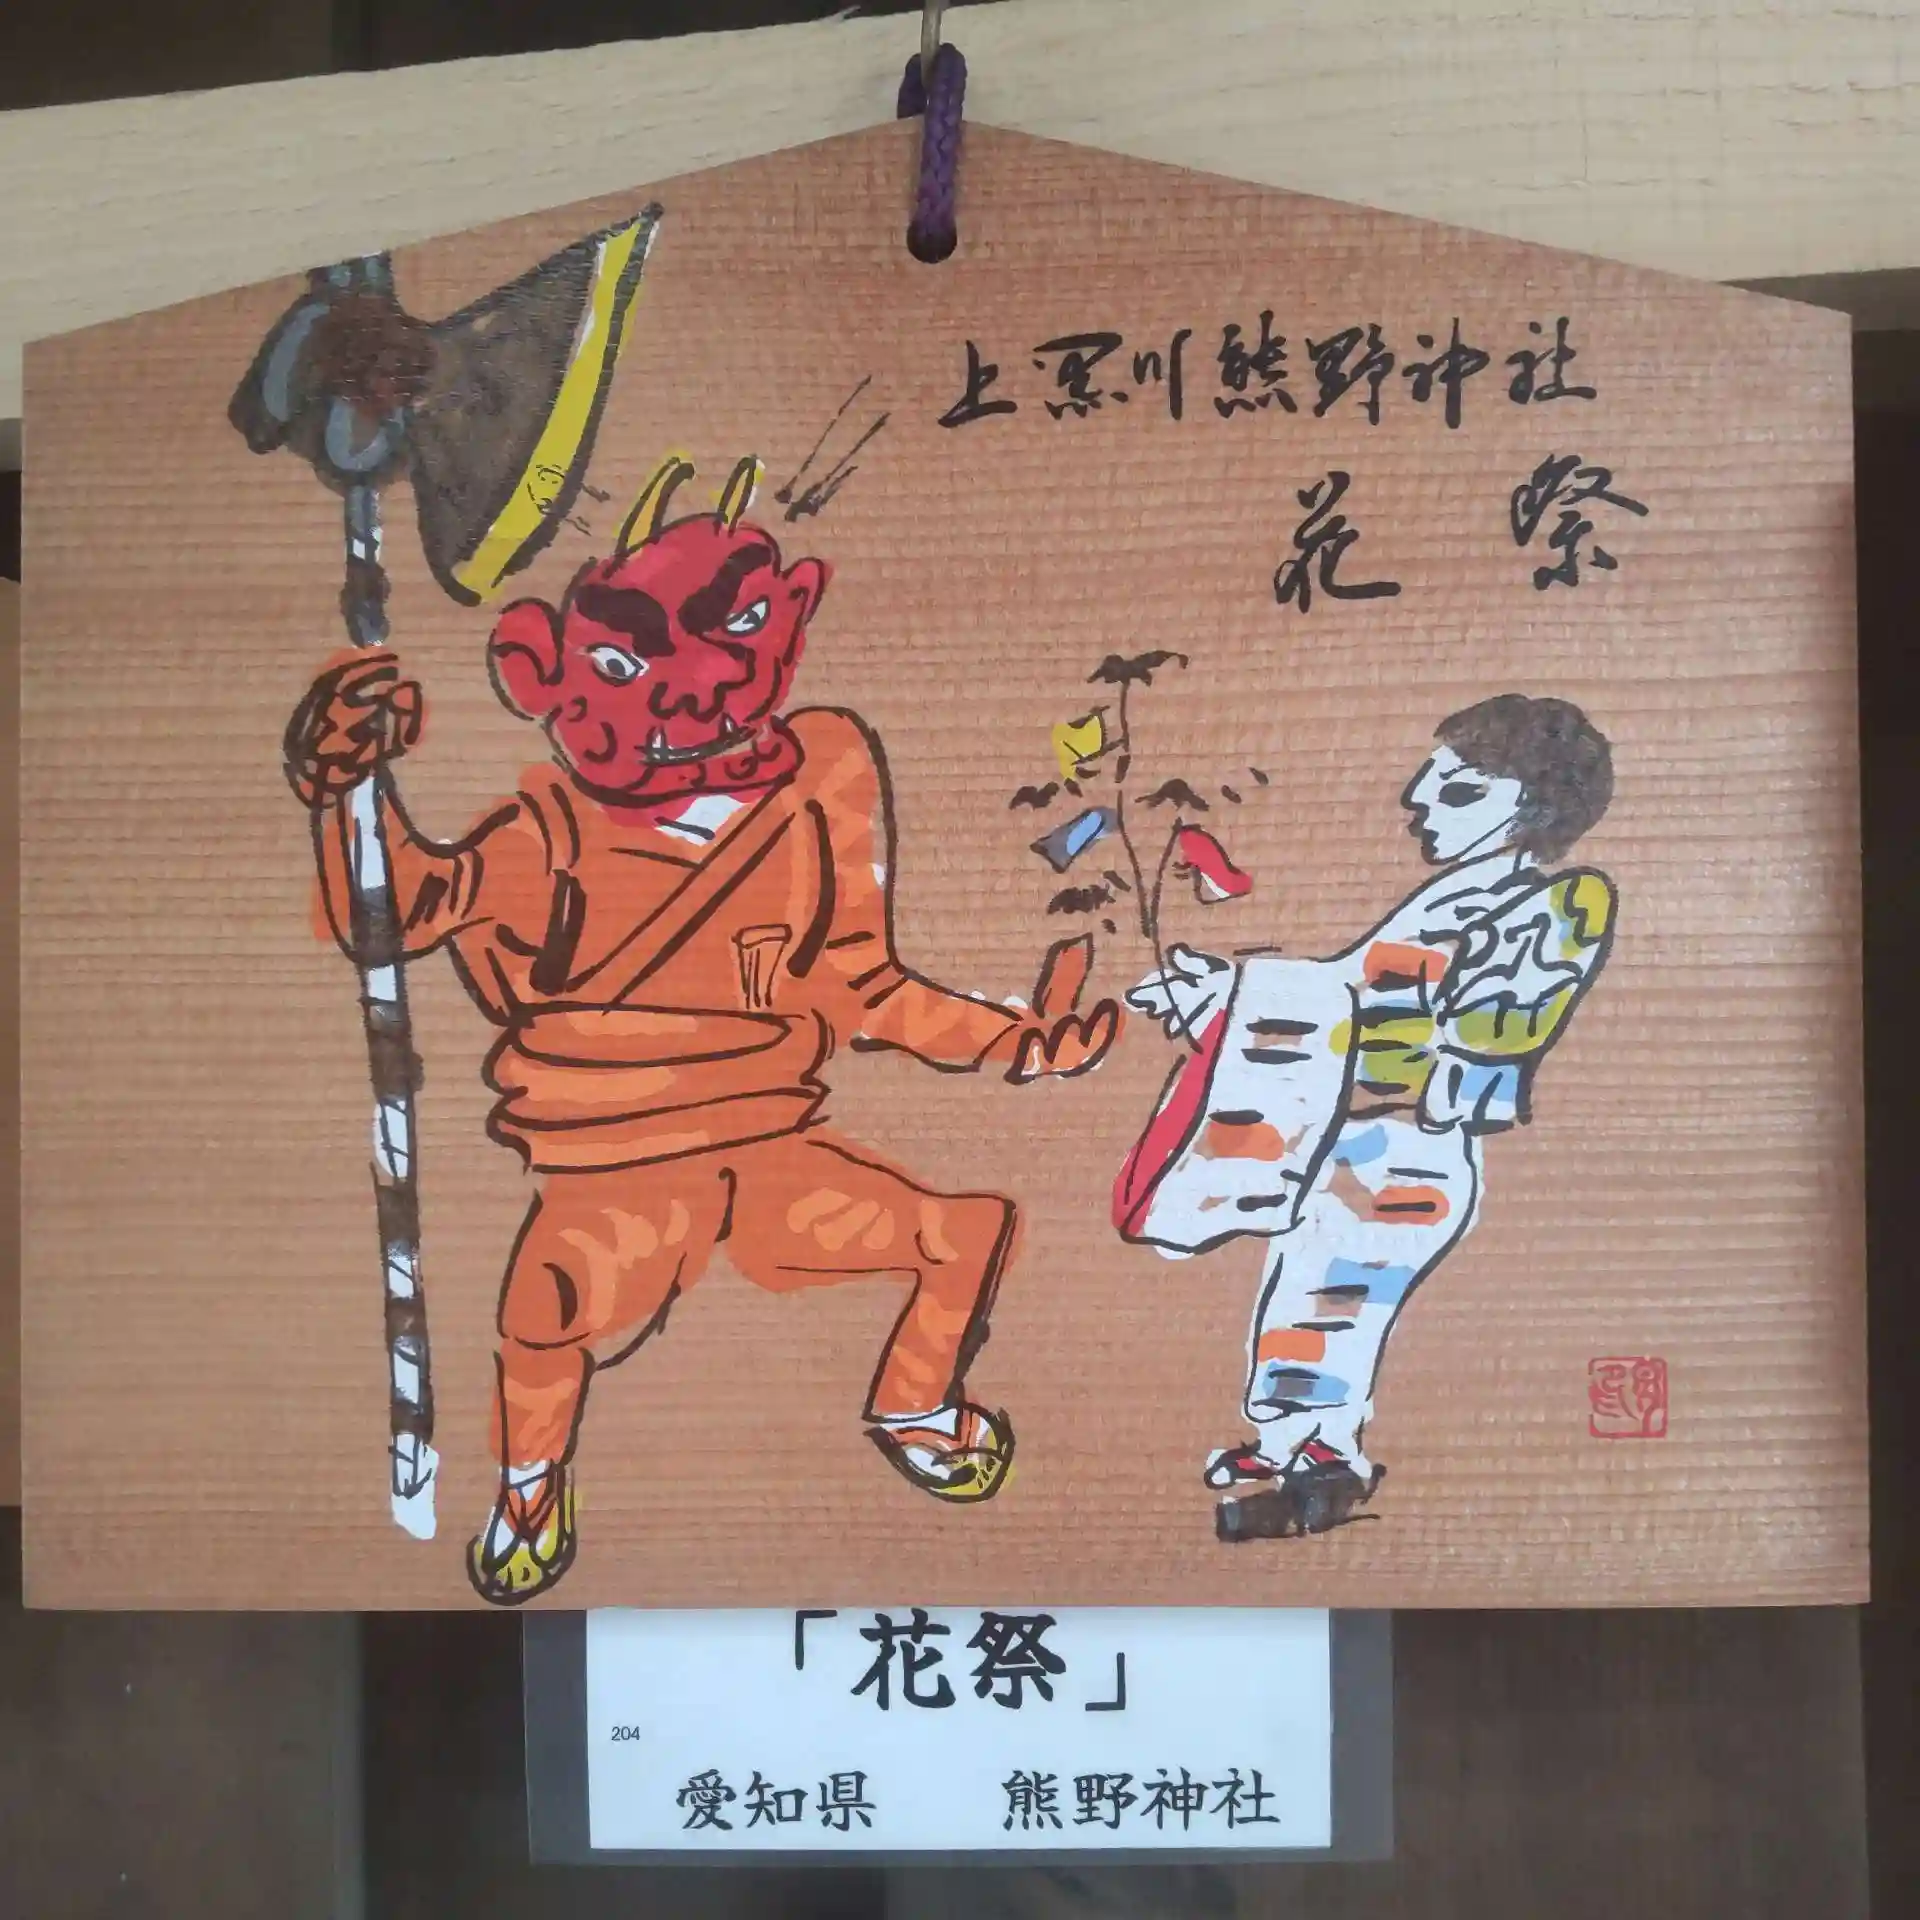 上黒川熊野神社
花祭
「花祭」
204
愛知県 熊野神社